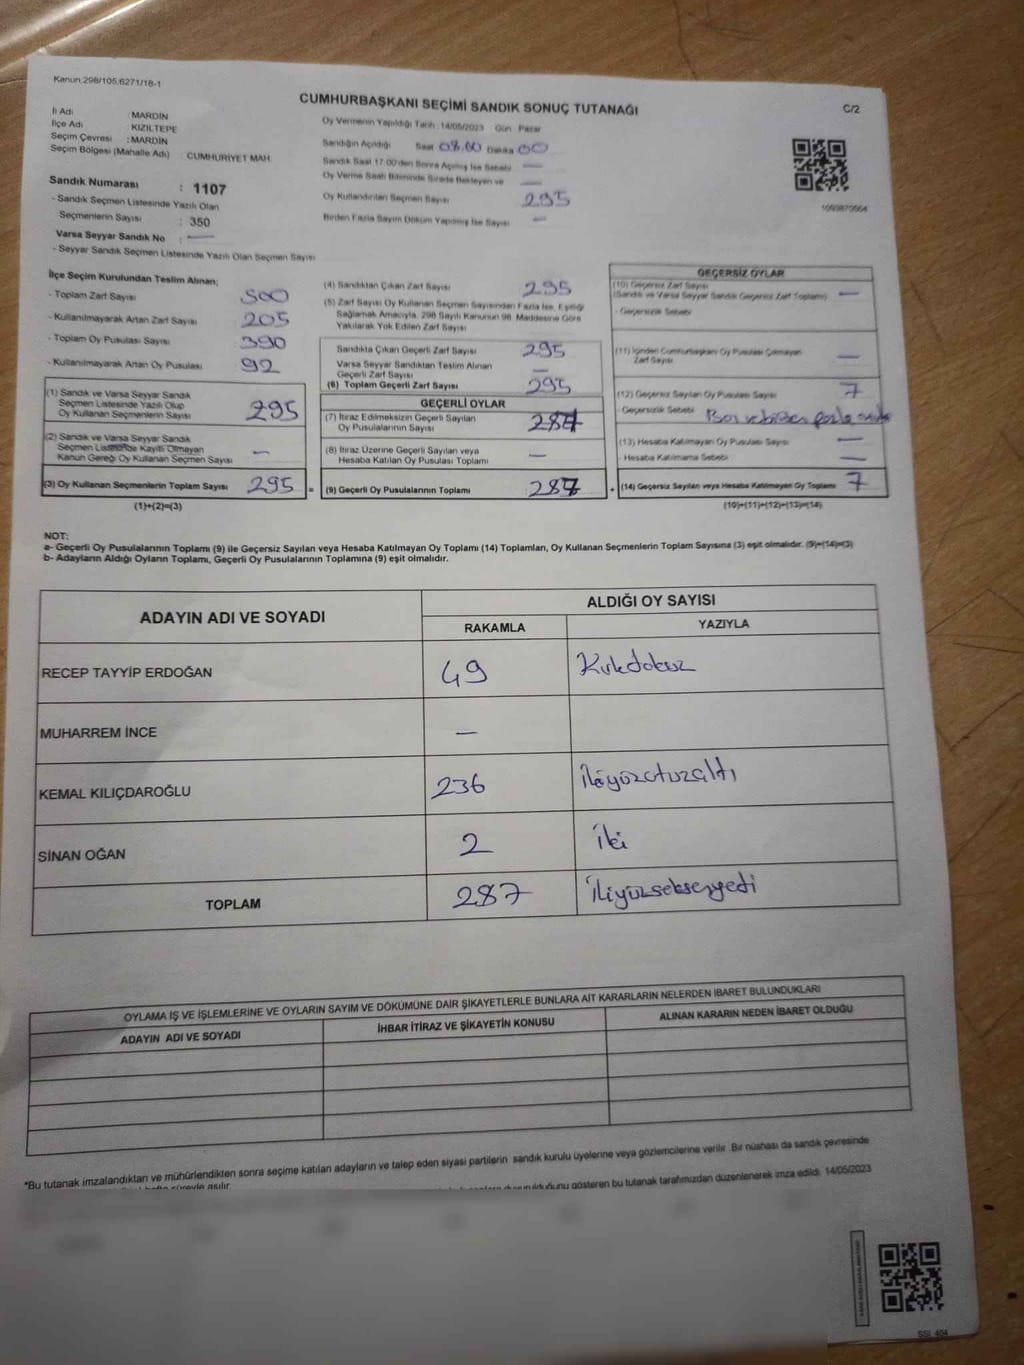 Kanun:298/105,6271/18-1
CUMHURBAŞKANI SEÇİMİ SANDIK SONUÇ TUTANAĞI
C/2
İl Adı : MARDİN
İlçe Adı : KIZILTEPE
Seçim Çevresi : MARDİN
Seçim Bölgesi (Mahalle Adı) CUMHURİYET MAH
Sandık Numarası : 1107
- Sandık Seçmen Listesinde Yazılı Olan
Seçmenlerin Sayısı : 350
Varsa Seyyar Sandık No : —
- Seyyar Sandık Seçmen Listesinde Yazılı Olan Seçmen Sayısı
Oy Vermenin Yapıldığı Tarih : 14/05/2023 Gün : Pazar
Sandığın Açıldığı Saat 08.00 Dakika 00
Sandık Saat 17.00'den Sonra Açılmış İse Sebebi —
Oy Verme Saati Bitiminde Sırada Bekleyen ve —
Oy Kullandırılan Seçmen Sayısı 295
Birden Fazla Sayım Döküm Yapılmış İse Sayısı —
İlçe Seçim Kurulundan Teslim Alınan;
- Toplam Zarf Sayısı 500
- Kullanılmayarak Artan Zarf Sayısı 205
- Toplam Oy Pusulası Sayısı 390
- Kullanılmayarak Artan Oy Pusulası 92
(1) Sandık ve Varsa Seyyar Sandık
Seçmen Listesinde Yazılı Olup
Oy Kullanan Seçmenlerin Sayısı 295
(2) Sandık ve Varsa Seyyar Sandık
Seçmen Listesinde Kayıtlı Olmayan
Kanun Gereği Oy Kullanan Seçmen Sayısı —
(3) Oy Kullanan Seçmenlerin Toplam Sayısı 295 =
(1)+(2)=(3)
(4) Sandıktan Çıkan Zarf Sayısı 295
(5) Zarf Sayısı Oy Kullanan Seçmen Sayısından Fazla İse, Eşitliği
Sağlamak Amacıyla, 298 Sayılı Kanunun 98. Maddesine Göre
Yakılarak Yok Edilen Zarf Sayısı
Sandıkta Çıkan Geçerli Zarf Sayısı 295
Varsa Seyyar Sandıktan Teslim Alınan
Geçerli Zarf Sayısı —
(6) Toplam Geçerli Zarf Sayısı 295
GEÇERLİ OYLAR
(7) İtiraz Edilmeksizin Geçerli Sayılan
Oy Pusulalarının Sayısı 287
(8) İtiraz Üzerine Geçerli Sayılan veya
Hesaba Katılan Oy Pusulası Toplamı —
(9) Geçerli Oy Pusulalarının Toplamı 287 +
GEÇERSİZ OYLAR
(10) Geçersiz Zarf Sayısı
(Sandık ve Varsa Seyyar Sandık Geçersiz Zarf Toplamı) —
- Geçersizlik Sebebi
(11) İçinden Cumhurbaşkanı Oy Pusulası Çıkmayan
Zarf Sayısı —
(12) Geçersiz Sayılan Oy Pusulası Sayısı 7
- Geçersizlik Sebebi
(13) Hesaba Katılmayan Oy Pusulası Sayısı —
- Hesaba Katılmama Sebebi —
(14) Geçersiz Sayılan veya Hesaba Katılmayan Oy Toplamı 7
(10)+(11)+(12)+(13)=(14)
NOT:
a- Geçerli Oy Pusulalarının Toplamı (9) ile Geçersiz Sayılan veya Hesaba Katılmayan Oy Toplamı (14) Toplamları, Oy Kullanan Seçmenlerin Toplam Sayısına (3) eşit olmalıdır. (9)+(14)=(3)
b- Adayların Aldığı Oyların Toplamı, Geçerli Oy Pusulalarının Toplamına (9) eşit olmalıdır.
ADAYIN ADI VE SOYADI
ALDIĞI OY SAYISI
RAKAMLA YAZIYLA
RECEP TAYYİP ERDOĞAN 49 Kırkdokuz
MUHARREM İNCE —
KEMAL KILIÇDAROĞLU 236 ikiyüzotuzaltı
SİNAN OĞAN 2 iki
TOPLAM 287 ikiyüzseksenyedi
OYLAMA İŞ VE İŞLEMLERİNE VE OYLARIN SAYIM VE DÖKÜMÜNE DAİR ŞİKAYETLERLE BUNLARA AİT KARARLARIN NELERDEN İBARET BULUNDUKLARI
ADAYIN ADI VE SOYADI İHBAR İTİRAZ VE ŞİKAYETİN KONUSU ALINAN KARARIN NEDEN İBARET OLDUĞU
*Bu tutanak imzalandıktan ve mühürlendikten sonra seçime katılan adayların ve talep eden siyasi partilerin sandık kurulu üyelerine veya gözlemcilerine verilir. Bir nüshası da sandık çevresinde
hafta süreyle asılır. gösteren bu tutanak tarafımızdan düzenlenerek imza edildi. 14/05/2023
SSİ_404